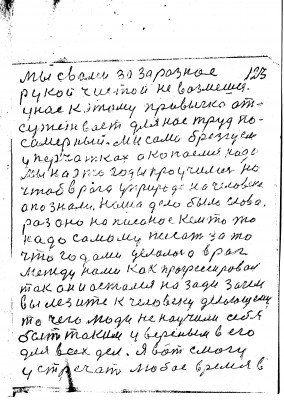 123
мы с вами за заразное
рукой чистой не возмеш.
у нас к этому привычка от-
суженвает для нас труд по-
самерный. Ми сами брезгуем
у перчатках а копаемся надо
мы на это годы проучились но
чтоб врага у природе на человека
опознали. Наша дело было слова.
раз оно написаное кемто то
надо самому писат за то
что годами делалос враг
между нами как прогресировал
так он и остался на зади Зачем
вы лезите к человеку делающему
то чего люди не научили себя
быт таким уверенным в его
для всех дел. Я вот смогу
устречат любое время в